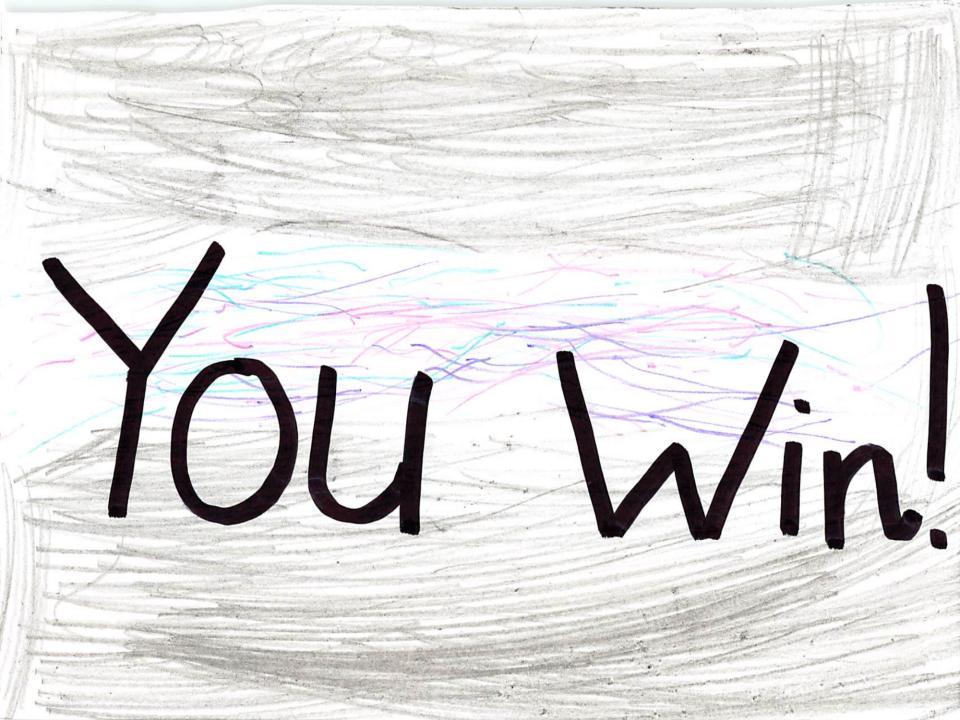 You Win!